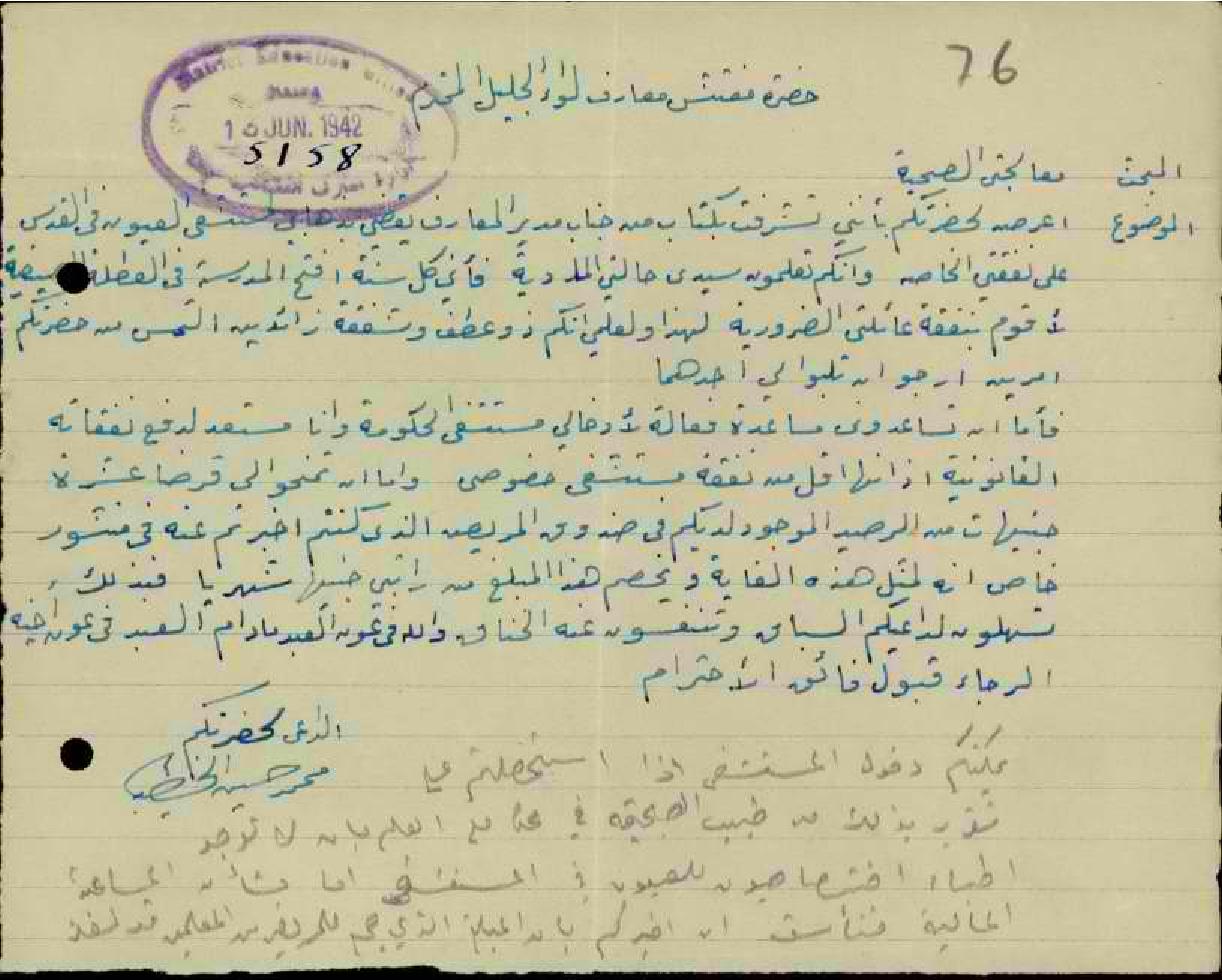 76
حضرة مفتش معارف لواء الجليل المحترم
District Education
16 JUN. 1942
5158
البحث معالجتي الصحية
الموضوع اعرض لحضرتكم بأنني تشرفت بكتاب من جناب مدير المعارف يقضي بذهابي لمستشفى العيون في القدس
على نفقتي الخاصه وانكم تعلمون سيدي حالتي المادية فأني كل سنة افتح المدرسة في العطلة الصيفية
لأقوم بنفقة عائلتي الضرورية لهذا ولعلمي انكم ذو عطف وشفقة زائدين التمس من حضرتكم
امرين ارجو ان تلبوا لي احدهما
فأما ان تساعدوني مساعدة فعالة لأدخالي مستشفى الحكومة وانا مستعد لدفع نفقاته
القانونية اذ انها اقل من نفقة مستشفى خصوصي واما ان تمنحوا لي قرضا عشرة
جنيهات من الرصيد الموجود لديكم في صندوق المريض الذي كنتم اخبرتم عنه في منشور
خاص انه لمثل هذه الغاية ويخصم هذا المبلغ من راتبي جنيها شهريا فبذلك
تسهلون لداعيكم السباق وتنفسون عنه الخناق والله في عون العبد مادام العبد في عون اخيه
الرجاء قبول فائق الأحترام
الداعي لحضرتكم
محمد حسين الخطيب
يمكنكم دخول المستشفى اذا استحصلتم على
تقرير بذلك من طبيب الصحة في عكا مع العلم بان لا توجد
اطباء اختصاصيون للعيون في المستشفى اما بشأن المساعدة
المالية فنأسف ان اخبركم بان المبلغ الذي جمع للمريض من المعلمين قد نفذ